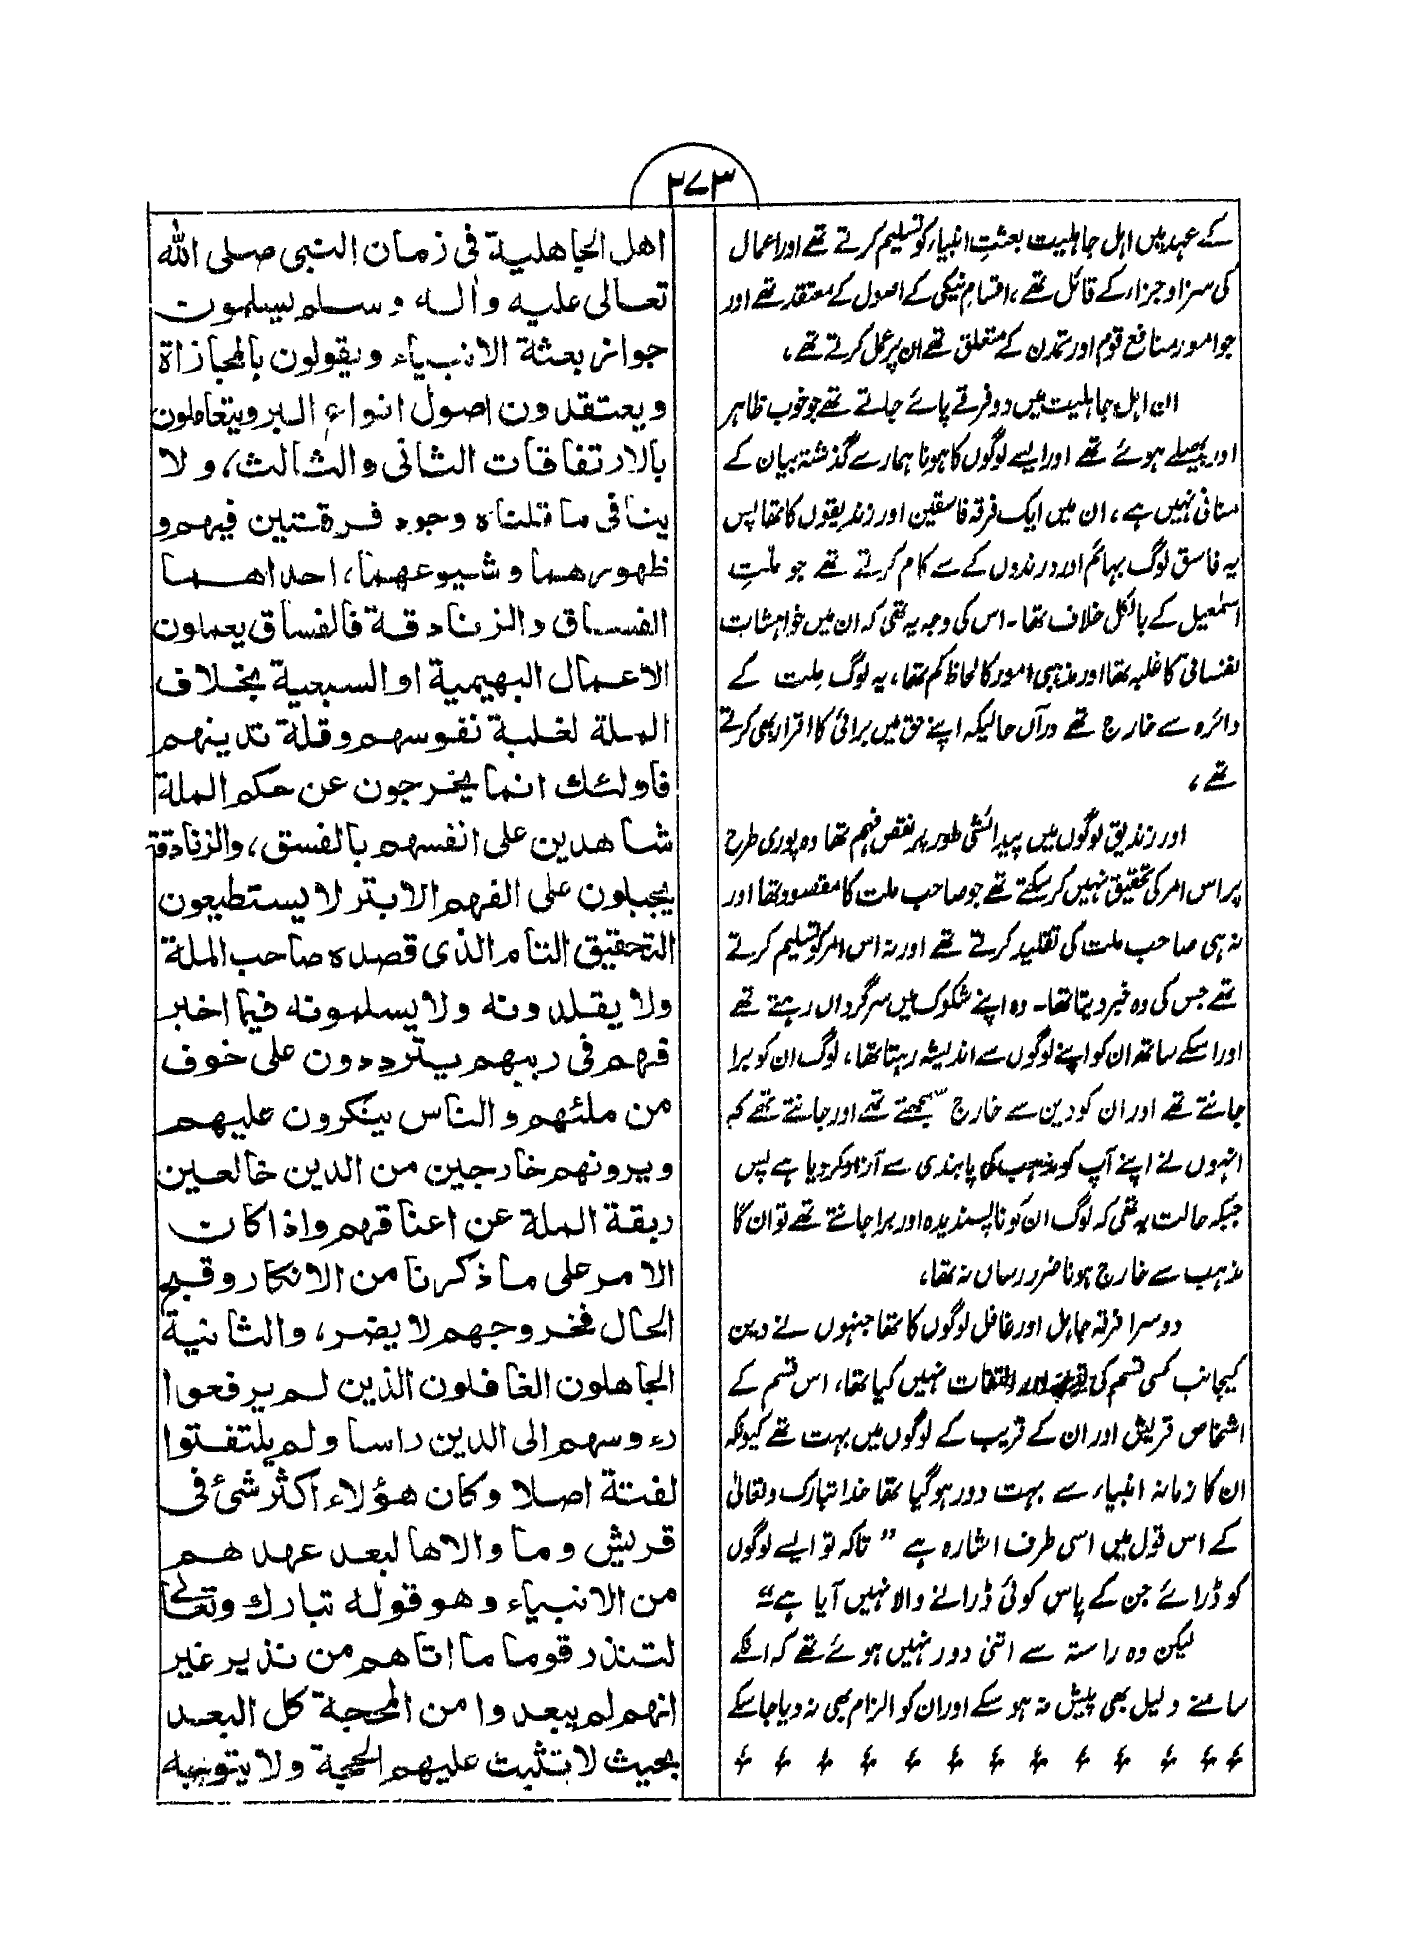 ۲۷۳
کے عہد میں اہل جاہلیت بعثتِ انبیاء کو تسلیم کرتے تھے اور اعمال
کی سزا و جزاء کے قائل تھے، اقسامِ نیکی کے اصول کے معتقد تھے اور
جو امور منافع قوم اور تمدن کے متعلق تھے ان پر عمل کرتے تھے،
ان اہل جاہلیت میں دو فرقے پائے جاتے تھے جو خوب ظاہر
اور پھیلے ہوئے تھے اور ایسے لوگوں کا ہونا ہمارے گذشتہ بیان کے
منافی نہیں ہے، ان میں ایک فرقہ فاسقین اور زندیقوں کا تھا پس
یہ فاسق لوگ بہائم اور درندوں کے سے کام کرتے تھے جو ملتِ
اسمٰعیل کے بالکل خلاف تھا۔ اس کی وجہ یہ تھی کہ ان میں خواہشات
نفسانی کا غلبہ تھا اور مذہبی امور کا لحاظ کم تھا، یہ لوگ ملت کے
دائرہ سے خارج تھے درآں حالیکہ اپنے حق میں برائی کا اقرار بھی کرتے
تھے،
اور زندیق لوگوں میں پیدائشی طور پر نقص فہم تھا وہ پوری طرح
پر اس امر کی تحقیق نہیں کر سکتے تھے جو صاحب ملت کا مقصود تھا اور
نہ ہی صاحب ملت کی تقلید کرتے تھے اور نہ اس امر کو تسلیم کرتے
تھے جس کی وہ خبر دیتا تھا۔ وہ اپنے شکوک میں سرگرداں رہتے تھے
اور اسکے ساتھ ان کو اپنے لوگوں سے اندیشہ رہتا تھا، لوگ ان کو برا
جانتے تھے اور ان کو دین سے خارج سمجھتے تھے اور جانتے تھے کہ
انہوں نے اپنے آپ کو مذہب کی پابندی سے آزاد کر دیا ہے پس
جبکہ حالت یہ تھی کہ لوگ ان کو ناپسندیدہ اور برا جانتے تھے تو ان کا
مذہب سے خارج ہونا ضرر رساں نہ تھا،
دوسرا فرقہ جاہل اور غافل لوگوں کا تھا جنہوں نے دین
کیجانب کسی قسم کی اور التفات نہیں کیا تھا، اس قسم کے
اشخاص قریش اور ان کے قریب کے لوگوں میں بہت تھے کیونکہ
ان کا زمانہ انبیاء سے بہت دور ہو گیا تھا خدا تبارک وتعالیٰ
کے اس قول میں اسی طرف اشارہ ہے "تاکہ تو ایسے لوگوں
کو ڈرائے جن کے پاس کوئی ڈرانے والا نہیں آیا ہے"
لیکن وہ راستہ سے اتنی دور نہیں ہوئے تھے کہ انکے
سامنے دلیل بھی پیش نہ ہو سکے اور ان کو الزام بھی نہ دیا جا سکے
اهل الجاهلية فی زمان النبی صلی الله
تعالی عليه واله وسلم يسلمون
جواز بعثة الانبياء ويقولون بالمجازاة
ويعتقدون اصول انواع البر ويتعاملون
بالارتفاقات الثانی والثالث، ولا
ينافی ما قلناه وجود فرقتين فيهم و
ظهورهما وشيوعهما، احداهما
الفساق والزنادقة فالفساق يعملون
الاعمال البهيمية او السبعية بخلاف
الملة لغلبة نفوسهم وقلة تدينهم
فاولئك انما يخرجون عن حكم الملة
شاهدين على انفسهم بالفسق، والزنادقة
يجبلون على الفهم الابتر لا يستطيعون
التحقيق التام الذی قصده صاحب الملة
ولا يقلدونه ولا يسلمونه فيما اخبر
فهم فی ريبهم يترددون على خوف
من ملئهم والناس ينكرون عليهم
ويرونهم خارجين من الدين خالعين
ربقة الملة عن اعناقهم واذا كان
الامر على ما ذكرنا من الانكار وقبح
الحال فخروجهم لا يضر، والثانية
الجاهلون الغافلون الذين لم يرفعوا
رءوسهم الى الدين راسا ولم يلتفتوا
لفتة اصلا وكان هؤلاء اكثر شئ فی
قريش وما والاها لبعد عهدهم
من الانبياء وهو قوله تبارك وتعالى
لتنذر قوما ما اتاهم من نذير غير
انهم لم يبعدوا من المحجة كل البعد
بحيث لا تثبت عليهم الحجة ولا يتوجه